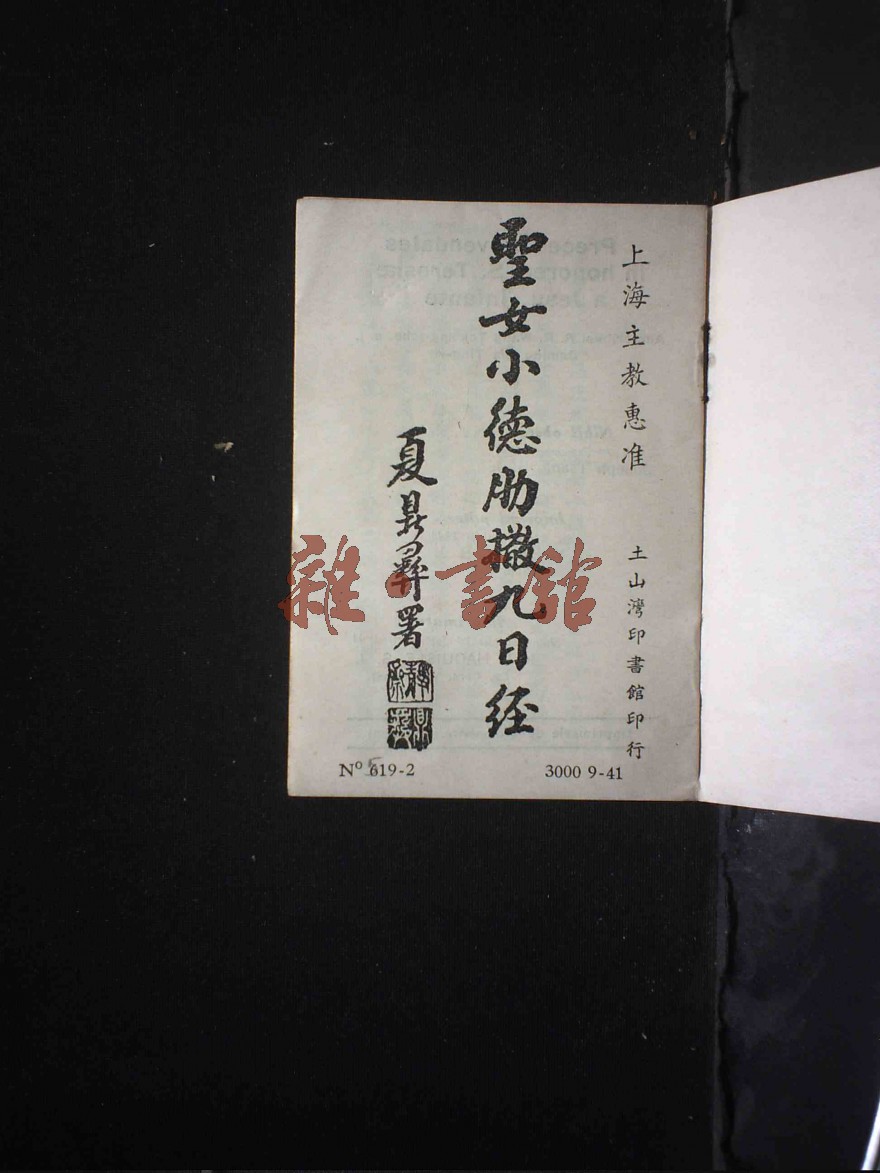 上海主教惠准
土山灣印書館印行
聖女小德肋撒九日經
夏鼎彝署
Nº 619-2
3000 9-41
雜書館